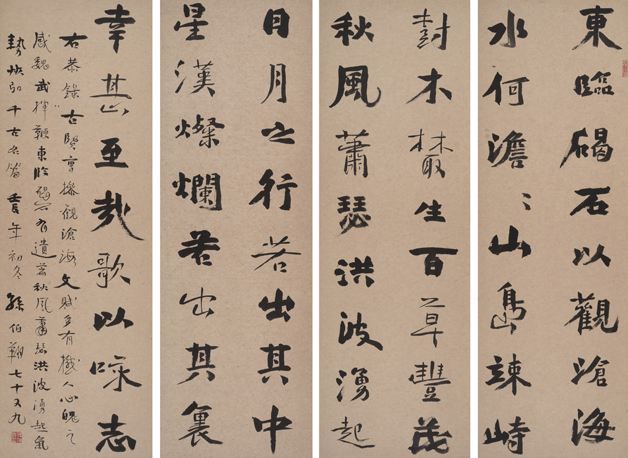 東臨碣石以觀滄海
水何澹〻山島竦峙
尌木樷生百草豐茂
秋風蕭瑟洪波湧起
日月之行若出其中
星漢燦爛若出其裏
幸甚至哉歌以咏志
右恭錄古賢曹操觀滄海文賦多有撼人心魄之
感魏武揮鞭東臨碣石有遺篇秋風蕭瑟洪波湧起氣
勢恢弘千古名篇壬辰年初冬孫伯翔七十又九